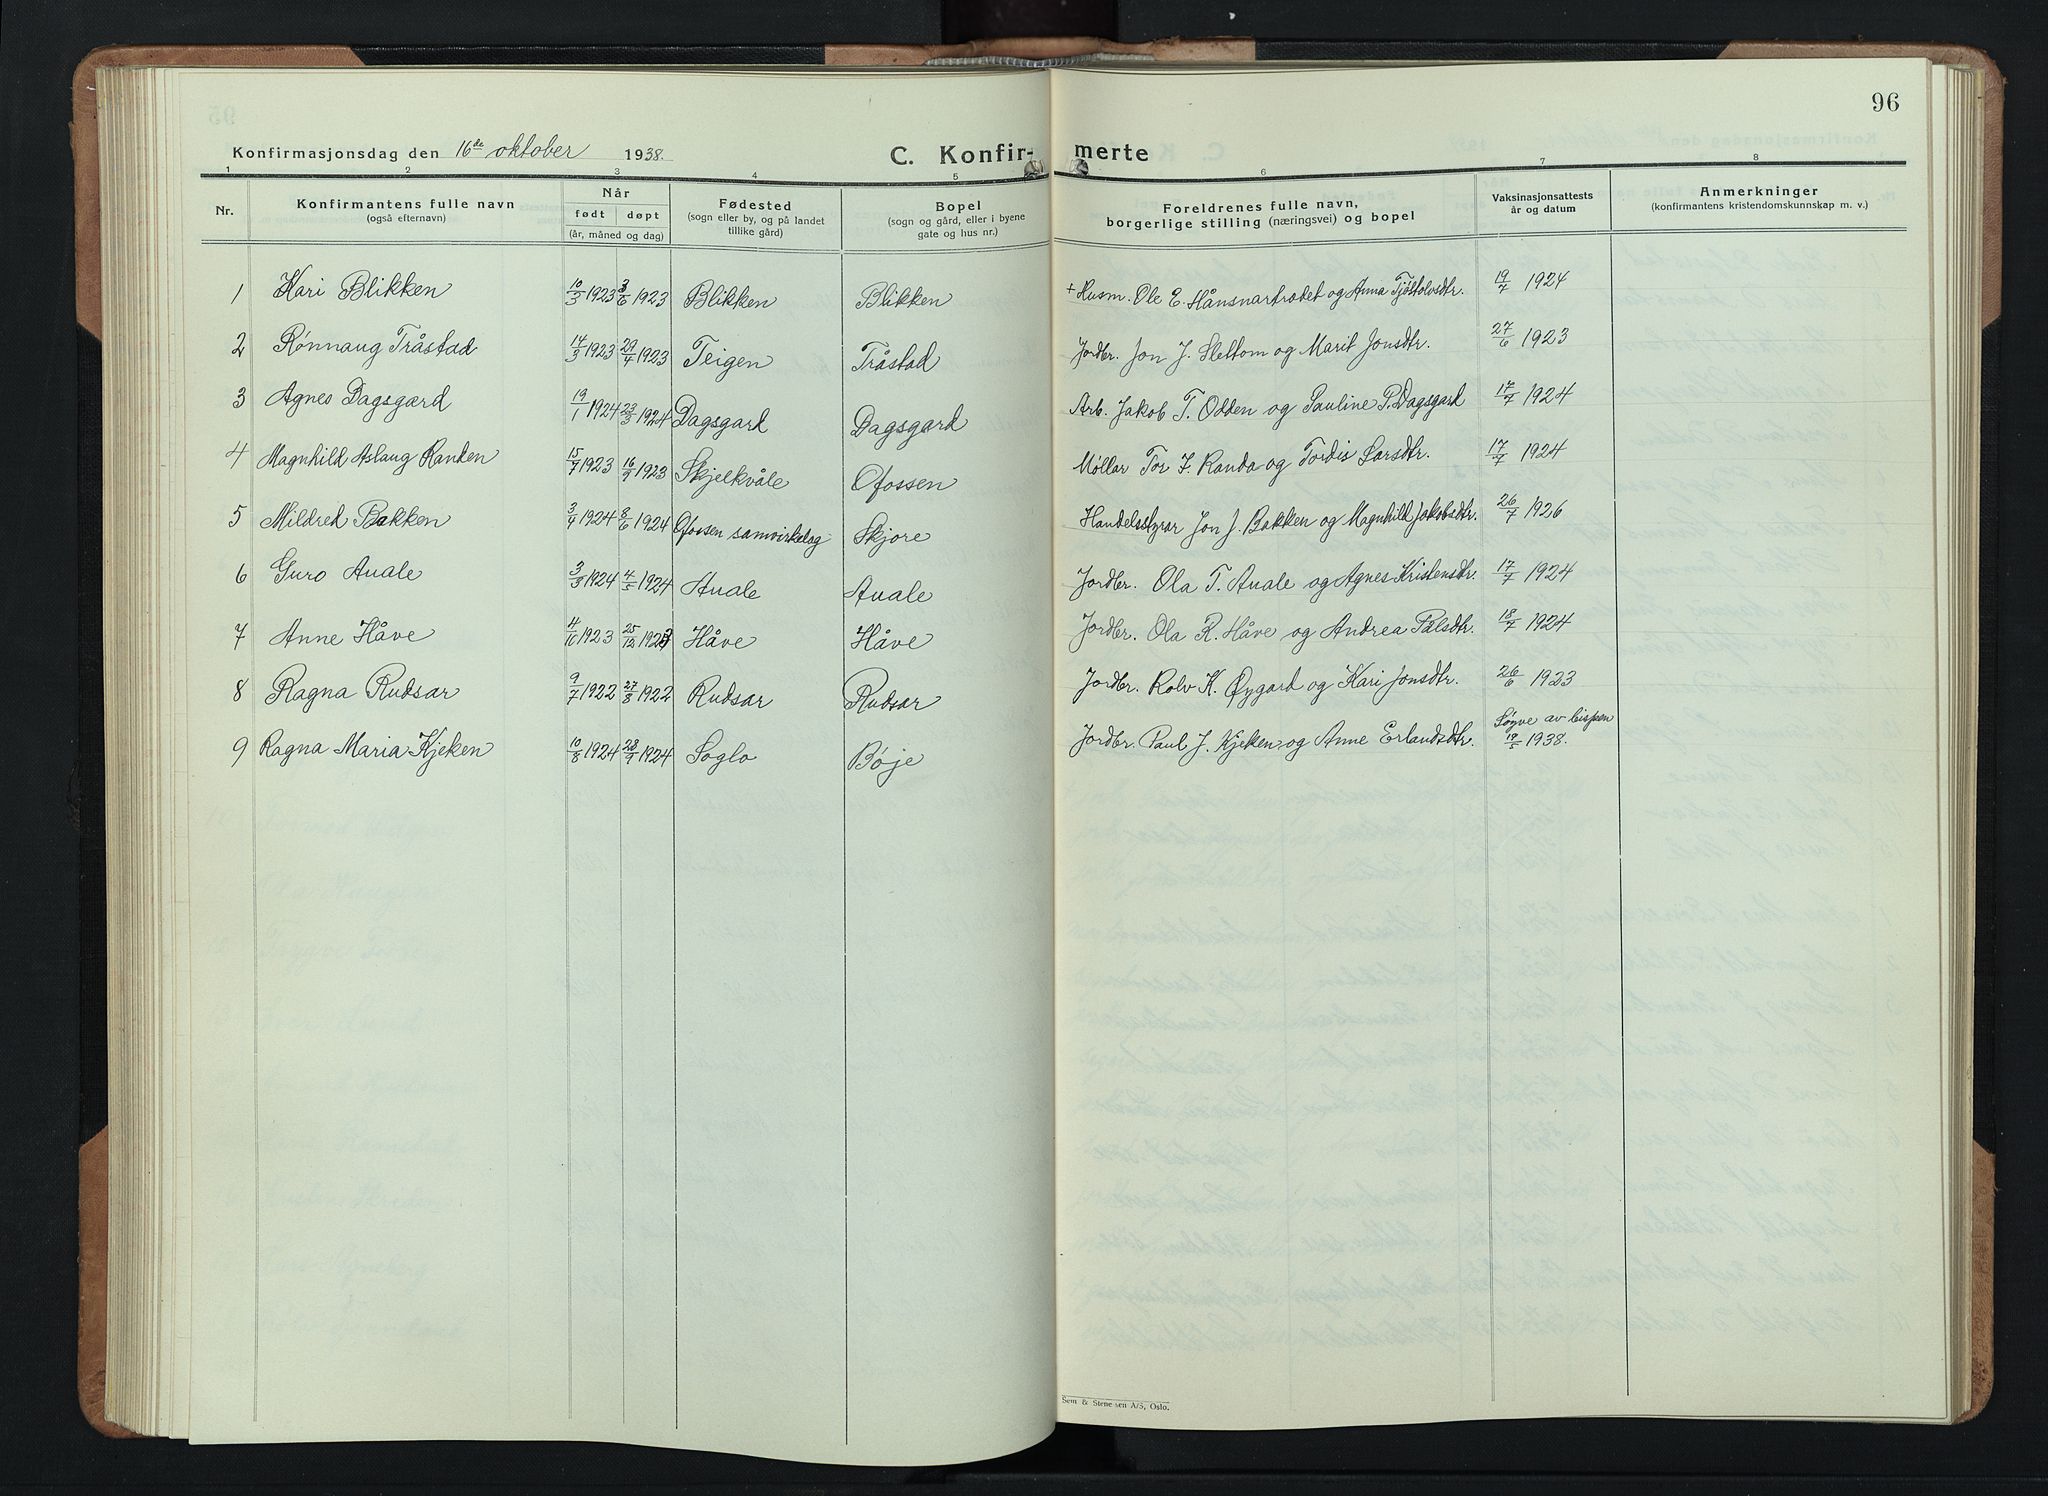 96
Konfirmasjonsdag den 16de oktober 1938.
C. Konfir- merte
1 2 3 4 5 6 7 8
Nr. Konfirmantens fulle navn (også efternavn) Når født døpt (år, måned og dag) Fødested (sogn eller by, og på landet tillike gård) Bopel (sogn og gård, eller i byene gate og hus nr.) Foreldrenes fulle navn, borgerlige stilling (næringsvei) og bopel Vaksinasjonsattests år og datum Anmerkninger (konfirmantens kristendomskunnskap m. v.)
1 Kari Blikken 10/3 1923 3/6 1923 Blikken Blikken + Husm. Ole E. Hånsnartrødet og Anna Tjøstolvsdtr. 19/7 1924
2 Rønnaug Tråstad 14/3 1923 29/4 1923 Teigen Tråstad Jordbr. Jon J. Slettom og Marit Jonsdtr. 27/6 1923
3 Agnes Dagsgard 19/1 1924 23/3 1924 Dagsgard Dagsgard Arb. Jakob T. Odden og Pauline P. Dagsgard 17/7 1924
4 Magnhild Aslaug Randen 15/7 1923 16/9 1923 Skjelkvåle Ofossen Møllar Tor J. Randa og Tordis Larsdtr. 17/7 1924
5 Mildred Bakken 3/4 1924 8/6 1924 Ofossen samvirkelag Skjore Handelsstyrar Jon J. Bakken og Magnhild Jakobsdtr. 26/7 1926
6 Guro Auale 3/3 1924 4/5 1924 Auale Auale Jordbr. Ola T. Auale og Agnes Kristensdtr. 17/7 1924
7 Anne Håve 4/10 1923 25/12 1923 Håve Håve Jordbr. Ola R. Håve og Andrea Pålsdtr. 18/7 1924
8 Ragna Rudsar 9/7 1922 27/8 1922 Rudsar Rudsar Jordbr. Rolv K. Øygard og Kari Jonsdtr. 26/6 1923
9 Ragna Maria Kjeken 10/8 1924 28/9 1924 Soglo Bøje Jordbr. Paul J. Kjeken og Anne Erlandsdtr. Søgve av bispen 19/5 1938.
Sem & Stenersen A/S, Oslo.